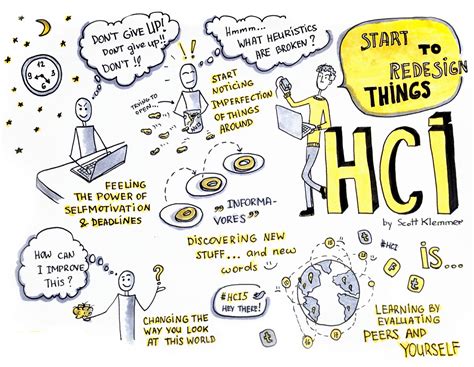 DON'T GIVE UP!
DON'T GIVE UP!!
DON'T !?
Hmmm...
WHAT HEURISTICS
ARE BROKEN?
START
TO
REDESIGN
THINGS
TRYING TO
OPEN...
START
NOTICING
IMPERFECTION
OF THINGS
AROUND
HCI
by Scott Klemmer
FEELING
THE POWER OF
SELFMOTIVATION
& DEADLINES
"INFORMA-
VORES"
DISCOVERING NEW
STUFF... and new
words
HOW CAN
I IMPROVE
THIS?
?
CHANGING THE
WAY YOU LOOK
AT THIS WORLD
#HCI5
HEY THERE!
#HCI
IS...
LEARNING BY
EVALUATING
PEERS AND
YOURSELF